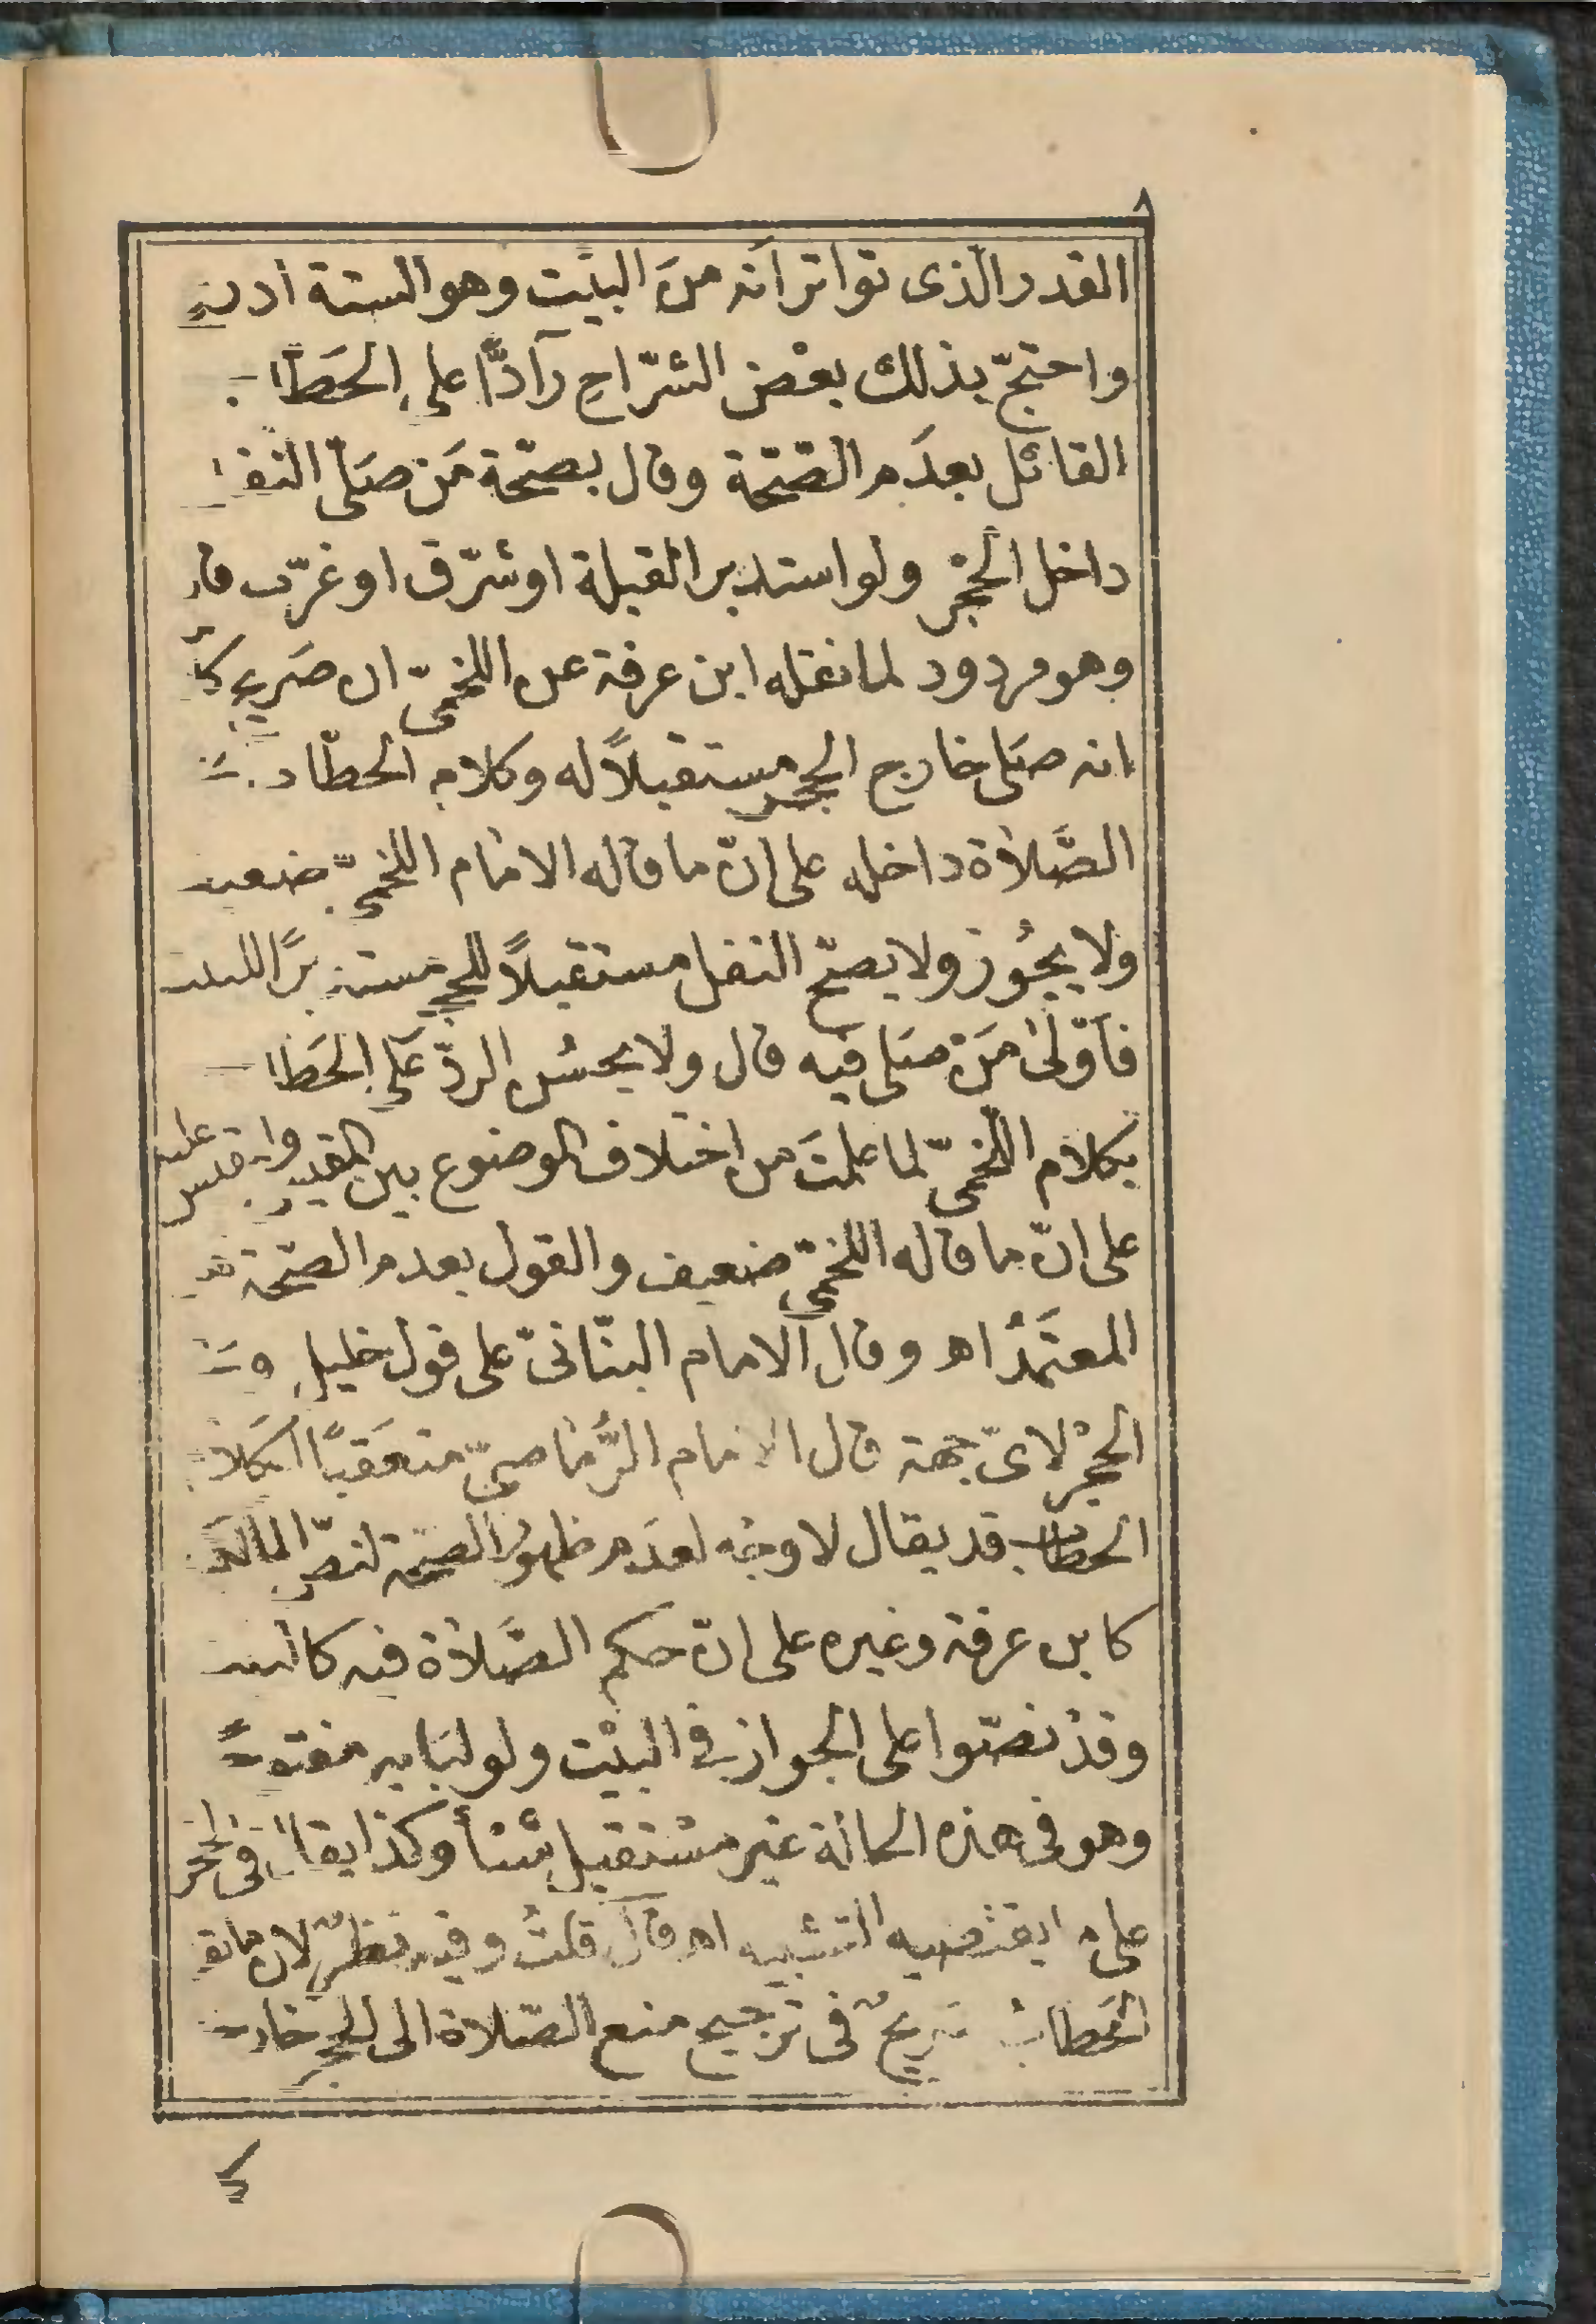 ٨
القدر الّذى تواتر أنه منَ البيْت وهو الستة اذرع
واحتجّ بذلك بعْض الشرّاحِ رآدًّا على الحَطّاب
القائل بعدَم الصّحّة وقال بصحّة مَن صلَّى النفل
داخل الحِجْر ولو استدبر القبلة او شرّق او غرّب قال
وهو مردود لما نقله ابن عرفة عن اللخمىّ ان صَريح
انه صَلى خارج الحِجر مستقبلاً له وكلام الحطّاب
الصَّلاة داخله على انّ ما قاله الامام اللخمىّ ضعيف
ولا يجُوز ولا يصحّ النفل مستقبلاً للحجر مستدبرًا للبيت
فأوْلى مَن صَلى فيه قال ولا يحسُن الردّ عَلى الحَطاب
بكلام اللّخمىّ لما علمتَ من اختلاف الموضوع بين المقيس والمقيس عليه
على انّ ما قاله اللخمىّ ضعيف والقول بعدم الصّحّة هو
المعتمَدُ اهـ وقال الامام البنّانىّ على قول خليل
الحِجْر لاىّ جهة قال الامام الرَّماصىّ متعَقبًا كَلام
الحطاب قد يقال لا وجْه لعدَم ظهور الصّحّة لنصّ المالكية
كابن عرفة وغيره على انّ حكم الصَّلاة فيه كالبيت
وقدْ نصّوا على الجواز فى البيْت ولو لبَابه مفتوحًا
وهو فى هذه الحالة غير مسْتقبل شيْئا وكذا يقال فى الحجر
على ما يقتضيه التشبيه اهـ قال قلتُ وفيه نظرٌ لان ما نقله
الحَطابُ صريحٌ فى ترجيح منع الصّلاة الى الحِجر خارجه